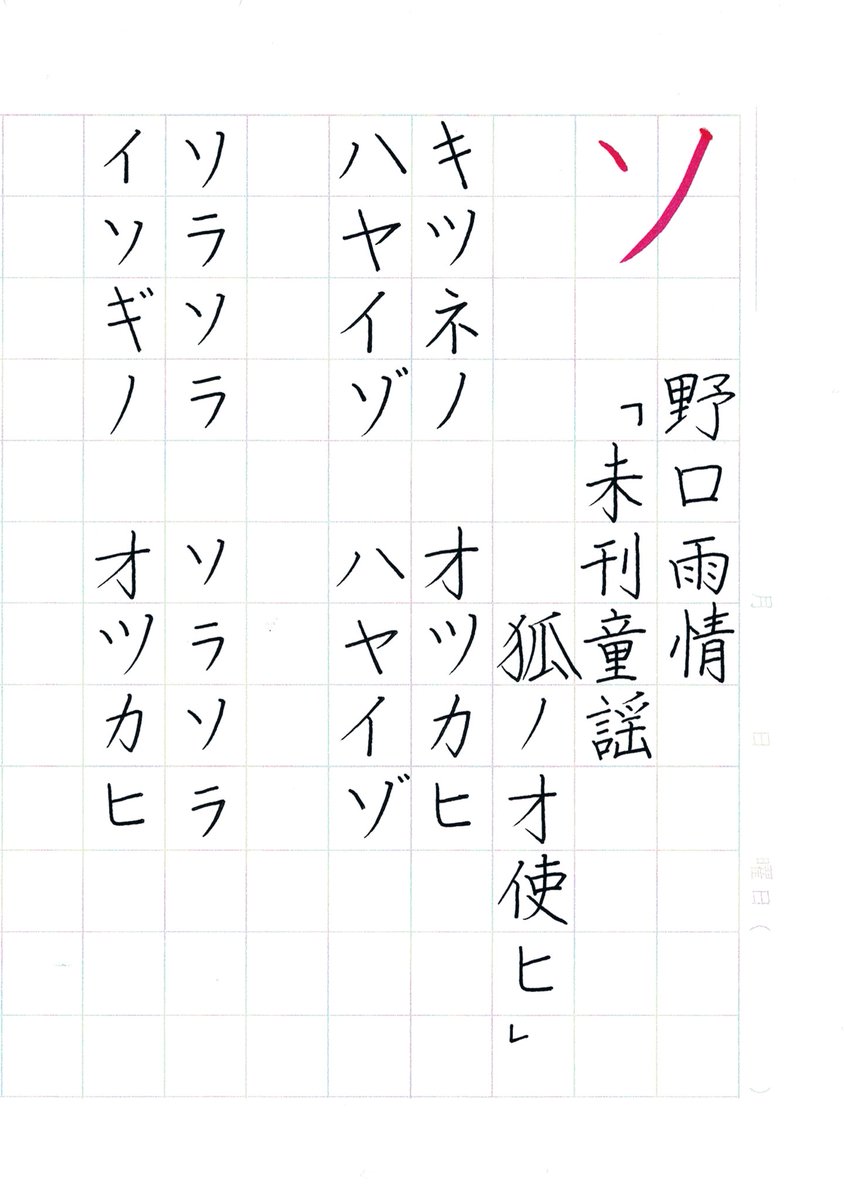 ソ
野口雨情
「未刊童謡
狐ノオ使ヒ」
キツネノ　オツカヒ
ハヤイゾ　ハヤイゾ
ソラソラ　ソラソラ
イソギノ　オツカヒ
月　日　曜日（　）